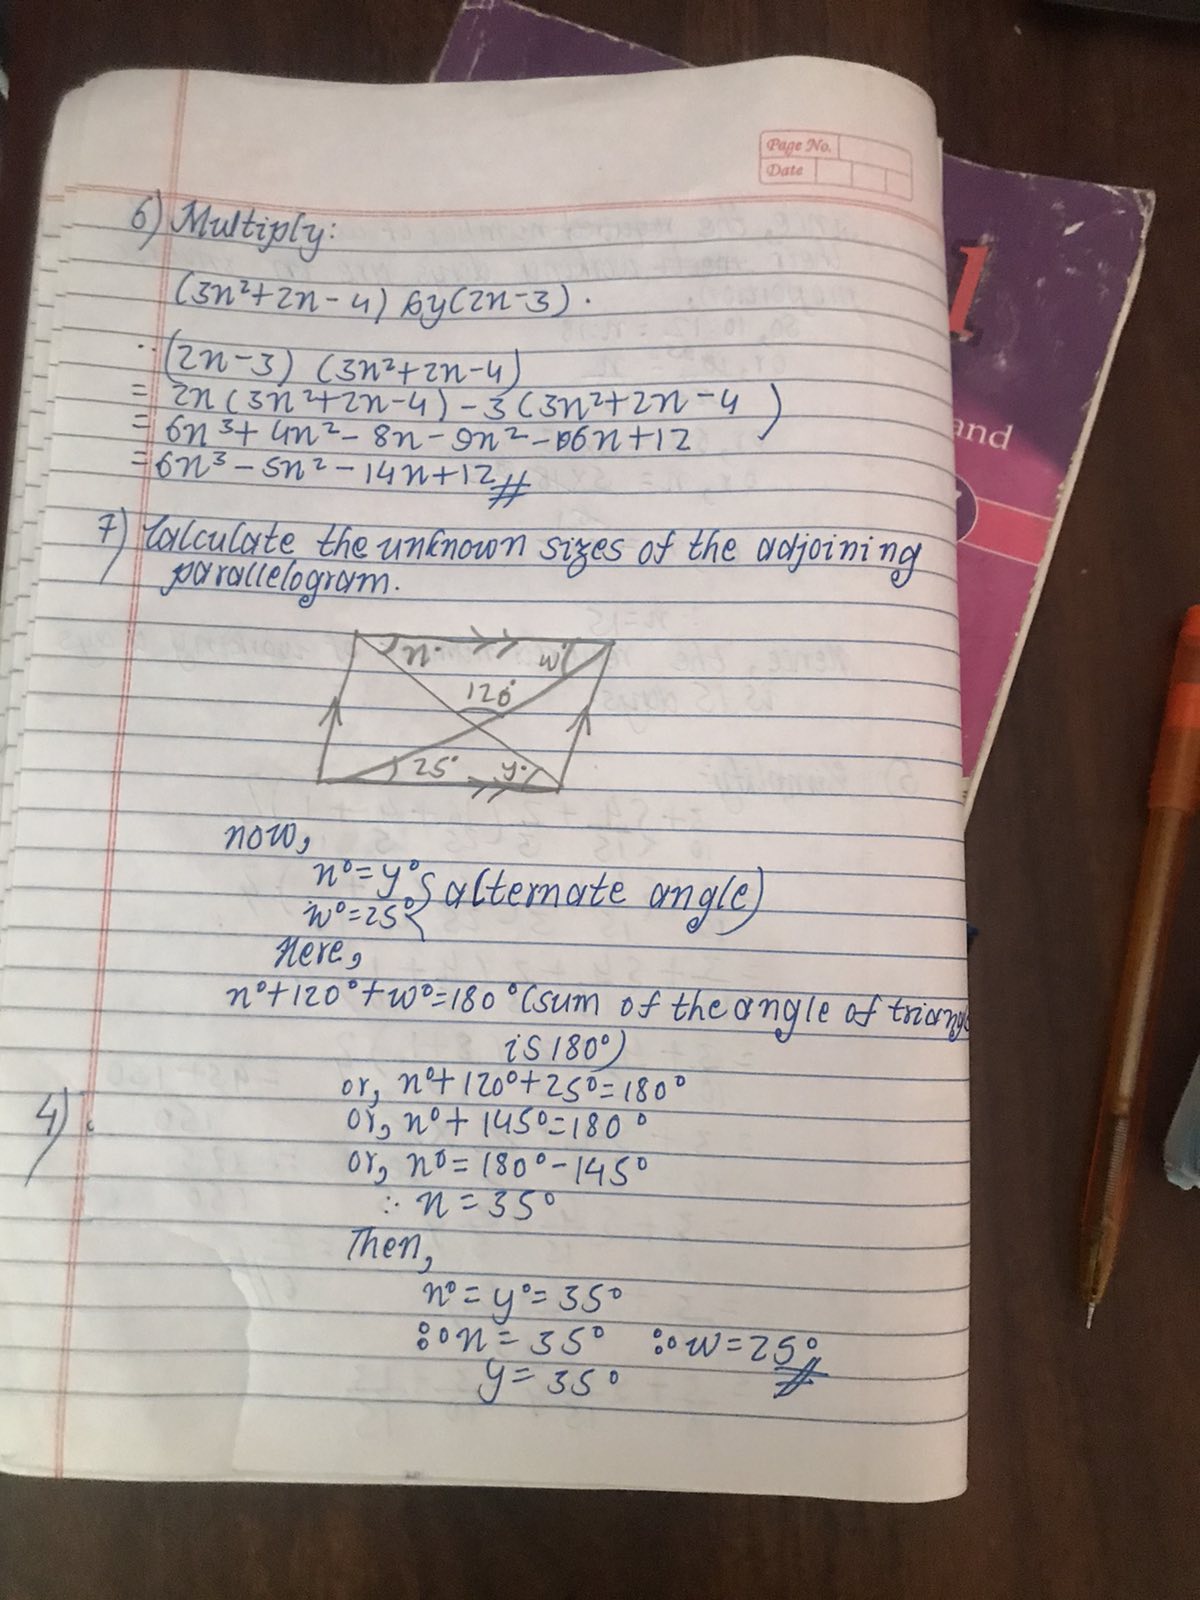 Page No.
Date
6) Multiply:
(3x²+2x-4) by (2x-3).
∴ (2x-3) (3x²+2x-4)
= 2x(3x²+2x-4) - 3(3x²+2x-4)
= 6x³+4x²-8x-9x²-6x+12
= 6x³-5x²-14x+12#
7) Calculate the unknown sizes of the adjoining
parallelogram.
x° w°
120°
25° y°
and
now,
x°=y° } alternate angle)
w°=25°
Here,
x°+120°+w°=180° (sum of the angle of triangle
is 180°)
or, x°+120°+25°=180°
4) or, x°+145°=180°
or, x°=180°-145°
∴ x=35°
Then,
x°=y°=35°
∴ x=35° ∴ w=25°#
y=35°